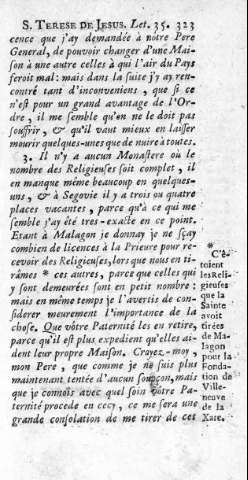 S. TERESE DE JESUS. Let. 35. 323
cence que j'ay demandée à nôtre Pere
General, de pouvoir changer d'une Mai-
son à une autre celles à qui l'air du Pays
feroit mal: mais dans la suite j'y ay ren-
contré tant d'inconveniens, que si ce
n'est pour un grand avantage de l'Or-
dre, il me semble qu'on ne le doit pas
souffrir, & qu'il vaut mieux en laisser
mourir quelques-unes que de nuire à toutes.
3. Il n'y a aucun Monastere où le
nombre des Religieuses soit complet, il
en manque même beaucoup en quelques-
uns, & à Segovie il y a trois ou quatre
places vacantes, parce qu'à ce qui me
semble j'ay été tres-exacte en ce point.
Etant à Malagon je donnay je ne sçay
combien de licences à la Prieure pour re-
cevoir des Religieuses, lors que nous en ti-
râmes * ces autres, parce que celles qui
y sont demeurées sont en petit nombre:
mais en même temps je l'avertis de con-
siderer meurement l'importance de la
chose. Que vôtre Paternité les en retire,
parce qu'il est plus expedient qu'elles ai-
dent leur propre Maison. Croyez-moy,
mon Pere, que comme je ne suis plus
maintenant tentée d'aucun soupçon, mais
que je connois avec quel soin vôtre Pa-
ternité procede en cecy, ce me sera une
grande consolation de me tirer de cet
*
C'é-
toient
les Reli-
gieuses
que la
Sainte
avoit
tirées
de Ma-
lagon
pour la
Fonda-
tion de
Ville-
neuve
de la
Xare.